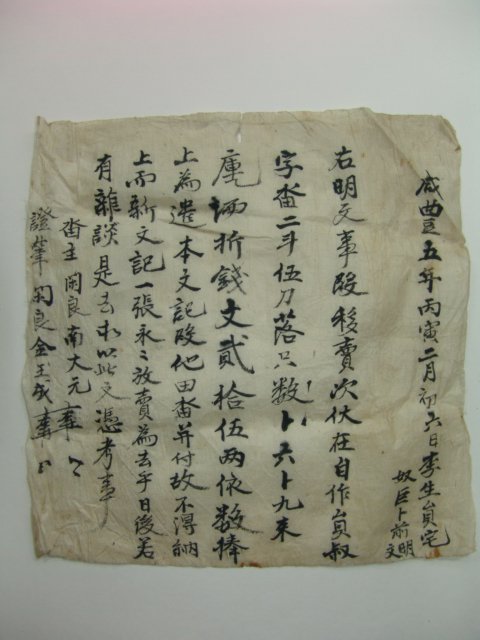 咸豊五年丙寅二月初六日李生員宅
奴臣卜前明
文
右明文事段移賣次伏在自作員叔
字畓二斗伍刀落只数卜六卜九束
庫乙折錢文貳拾伍両依数捧
上為遣本文記段他田畓并付故不得納
上而新文記一張永〻放賣為去乎日後若
有雜談是去以此文憑考事
畓主閑良南大元
證筆閑良金玉成